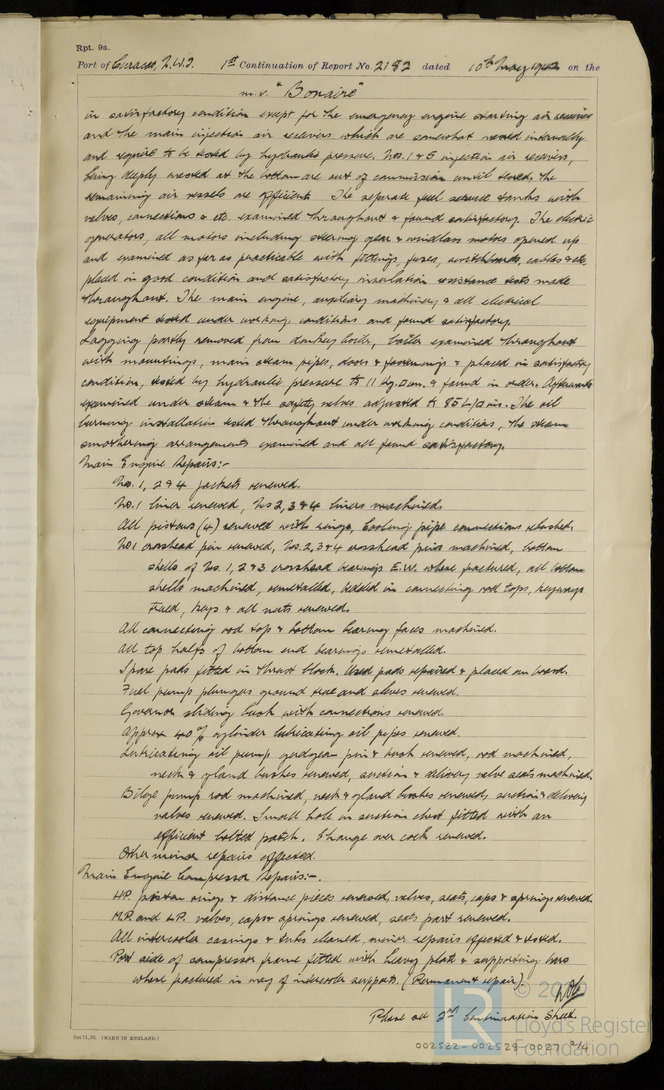 Rpt. 9a.
Port of Curacao, N.W.I. 1st Continuation of Report No. 2182 dated 10th May 1942 on the
m.v. "Bonaire"
in satisfactory condition except for the emergency engine starting air receiver
and the main injection air receivers which are somewhat wasted internally
and require to be tested by hydraulic pressure, Nos. 1 & 5 injection air receivers,
being deeply wasted at the bottom are out of commission until tested, the
remaining air vessels are efficient. The separate fuel service tanks with
valves, connections & etc. examined throughout & found satisfactory. The electric
generators, all motors including steering gear & windlass motors opened up
and examined as far as practicable with fittings, fuses, switchboards, cables & etc
placed in good condition and satisfactory insulation resistance tests made
throughout. The main engine, auxiliary machinery & all electrical
equipment tested under working conditions and found satisfactory.
Lagging partly removed from donkey boiler, boiler examined throughout
with mountings, main steam pipes, doors & fastenings & placed in satisfactory
condition, tested by hydraulic pressure to 11 kg.□cm. & found in order. Afterwards
examined under steam & the safety valves adjusted to 85 lb/□ins. The oil
burning installation tested throughout under working conditions, the steam
smothering arrangements examined and all found satisfactory.
Main Engine Repairs:-
No. 1, 2 & 4 jackets renewed.
No. 1 liner renewed, Nos 2, 3 & 4 liners machined.
All pistons (4) renewed with rings, cooling pipe connections
No1 crosshead pin renewed, Nos. 2, 3 & 4 crosshead pins machined, bottom
shells of Nos. 1, 2 & 3 crosshead bearings E.W. where fractured, all bottom
shells machined, remetalled, bedded in connecting rod tops, keyways
trued, keys & all nuts renewed.
All connecting rod top & bottom bearing faces machined.
All top halfs of bottom end bearings remetalled.
Spare pads fitted in thrust block. Used pads repaired & placed on board.
Fuel pump plungers ground true and sleeves renewed.
Governor sliding bush with connections renewed.
Approx 40% cylinder lubricating oil pipes renewed.
Lubricating oil pump gudgeon pin & bush renewed, rod machined,
neck & gland bushes renewed, suction & delivery valve seats machined.
Bilge pump rod machined, neck & gland bushes renewed, suction & delivery
valves renewed. Small hole in suction chest fitted with an
efficient bolted patch. Change over cock renewed.
Other minor repairs effected.
Main Engine Compressor Repairs:-
H.P. piston rings & distance pieces renewed, valves, seats, caps & springs renewed.
M.P. and L.P. valves, caps & springs renewed, seats part renewed.
All intercooler casings & tubes cleaned, minor repairs effected & tested.
Port side of compressor frame fitted with heavy plate & supporting bars
where fractured in way of intercooler supports. (Permanent repair).
Please see 2nd Continuation Sheet.
(MADE IN ENGLAND.)
LR
© 20
Lloyd's Register
Foundation
002522-002529-0027 2/4